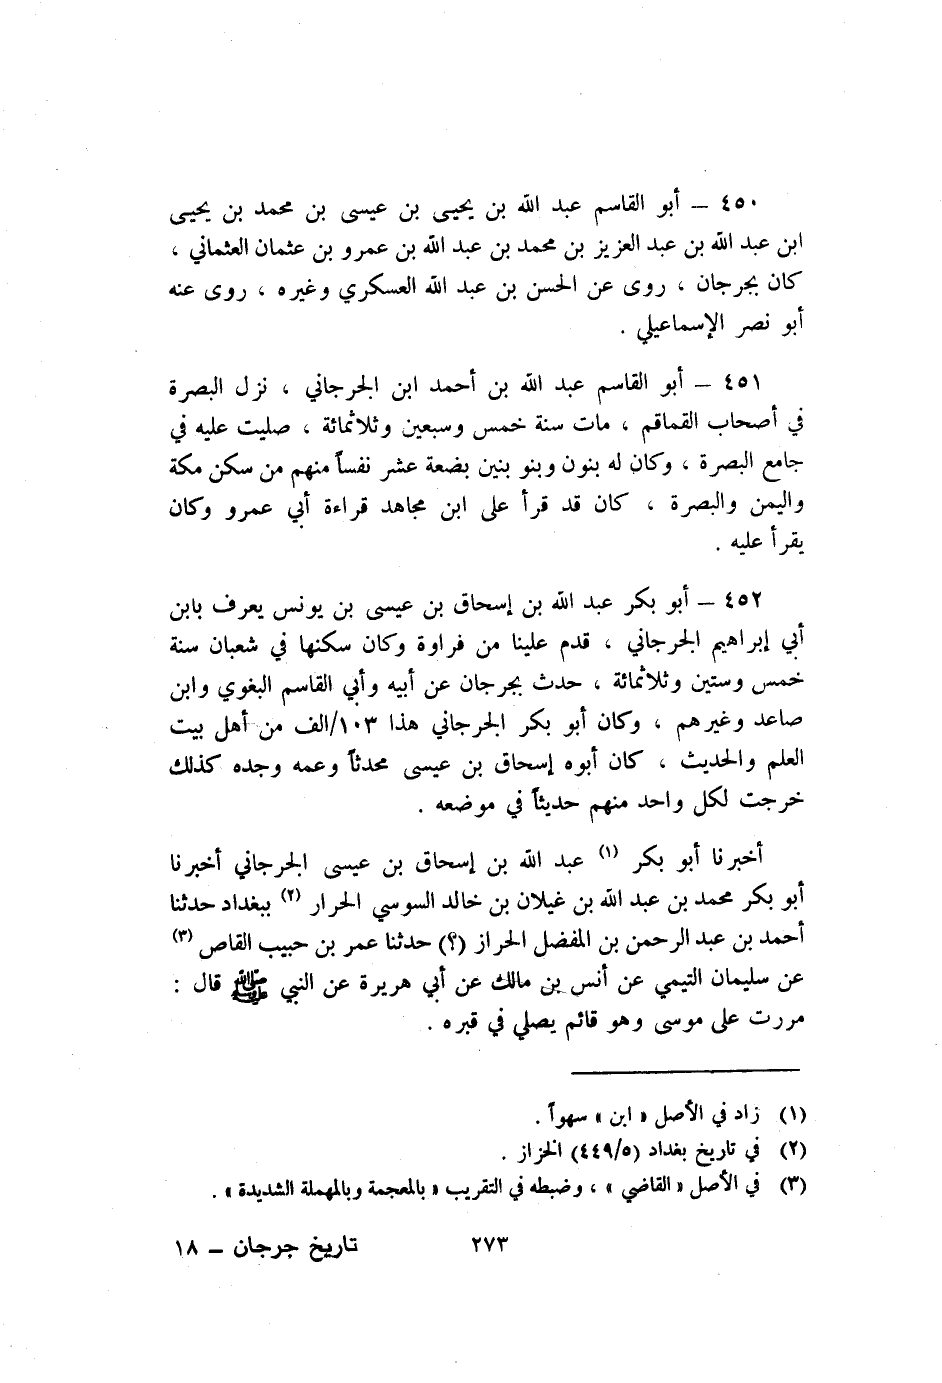 ٤٥٠ ــ أبو القاسم عبد الله بن يحيى بن عيسى بن محمد بن يحيى
ابن عبد الله بن عبد العزيز بن محمد بن عبد الله بن عمرو بن عثمان العثماني ،
كان بجرجان ، روى عن الحسن بن عبد الله العسكري وغيره ، روى عنه
أبو نصر الإسماعيلي .
٤٥١ ــ أبو القاسم عبد الله بن أحمد ابن الجرجاني ، نزل البصرة
في أصحاب القماقم ، مات سنة خمس وسبعين وثلاثمائة ، صليت عليه في
جامع البصرة ، وكان له بنون وبنو بنين بضعة عشر نفساً منهم من سكن مكة
واليمن والبصرة ، كان قد قرأ على ابن مجاهد قراءة أبي عمرو وكان
يقرأ عليه .
٤٥٢ ــ أبو بكر عبد الله بن إسحاق بن عيسى بن يونس يعرف بابن
أبي إبراهيم الجرجاني ، قدم علينا من فراوة وكان سكنها في شعبان سنة
خمس وستين وثلاثمائة ، حدث بجرجان عن أبيه وأبي القاسم البغوي وابن
صاعد وغيرهم ، وكان أبو بكر الجرجاني هذا ١٠٣/الف من أهل بيت
العلم والحديث ، كان أبوه إسحاق بن عيسى محدثاً وعمه وجده كذلك
خرجت لكل واحد منهم حديثاً في موضعه .
أخبرنا أبو بكر (١) عبد الله بن إسحاق بن عيسى الجرجاني أخبرنا
أبو بكر محمد بن عبد الله بن غيلان بن خالد السوسي الحرار (٢) ببغداد حدثنا
أحمد بن عبد الرحمن بن المفضل الحراز (؟) حدثنا عمر بن حبيب القاص (٣)
عن سليمان التيمي عن أنس بن مالك عن أبي هريرة عن النبي ﷺ قال :
مررت على موسى وهو قائم يصلي في قبره .
(١) زاد في الأصل « ابن » سهواً .
(٢) في تاريخ بغداد (٤٤٩/٥) الخزاز .
(٣) في الأصل « القاضي » ، وضبطه في التقريب « بالمعجمة وبالمهملة الشديدة » .
٢٧٣ تاريخ جرجان ــ ١٨